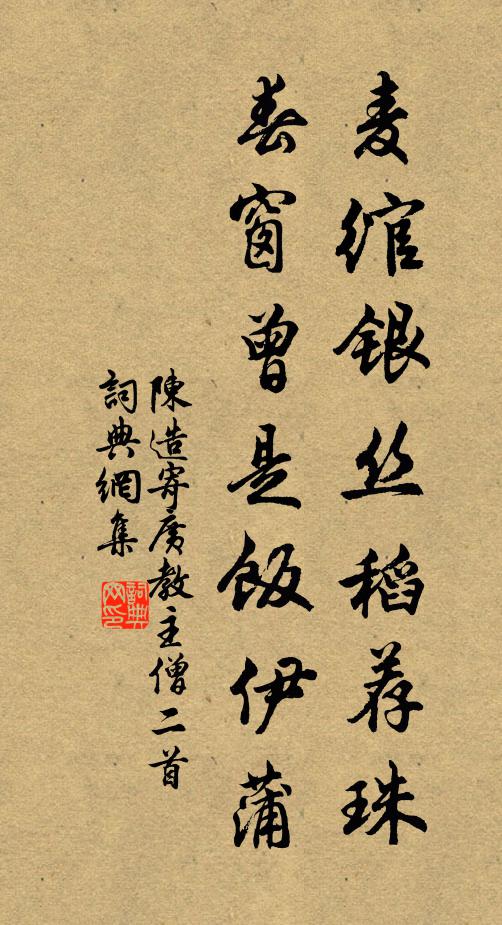 麦綰银丝稻荐珠
春窗曾是饭伊蒲
陳造寄廣教主僧二首
詞典網集
詞典網印